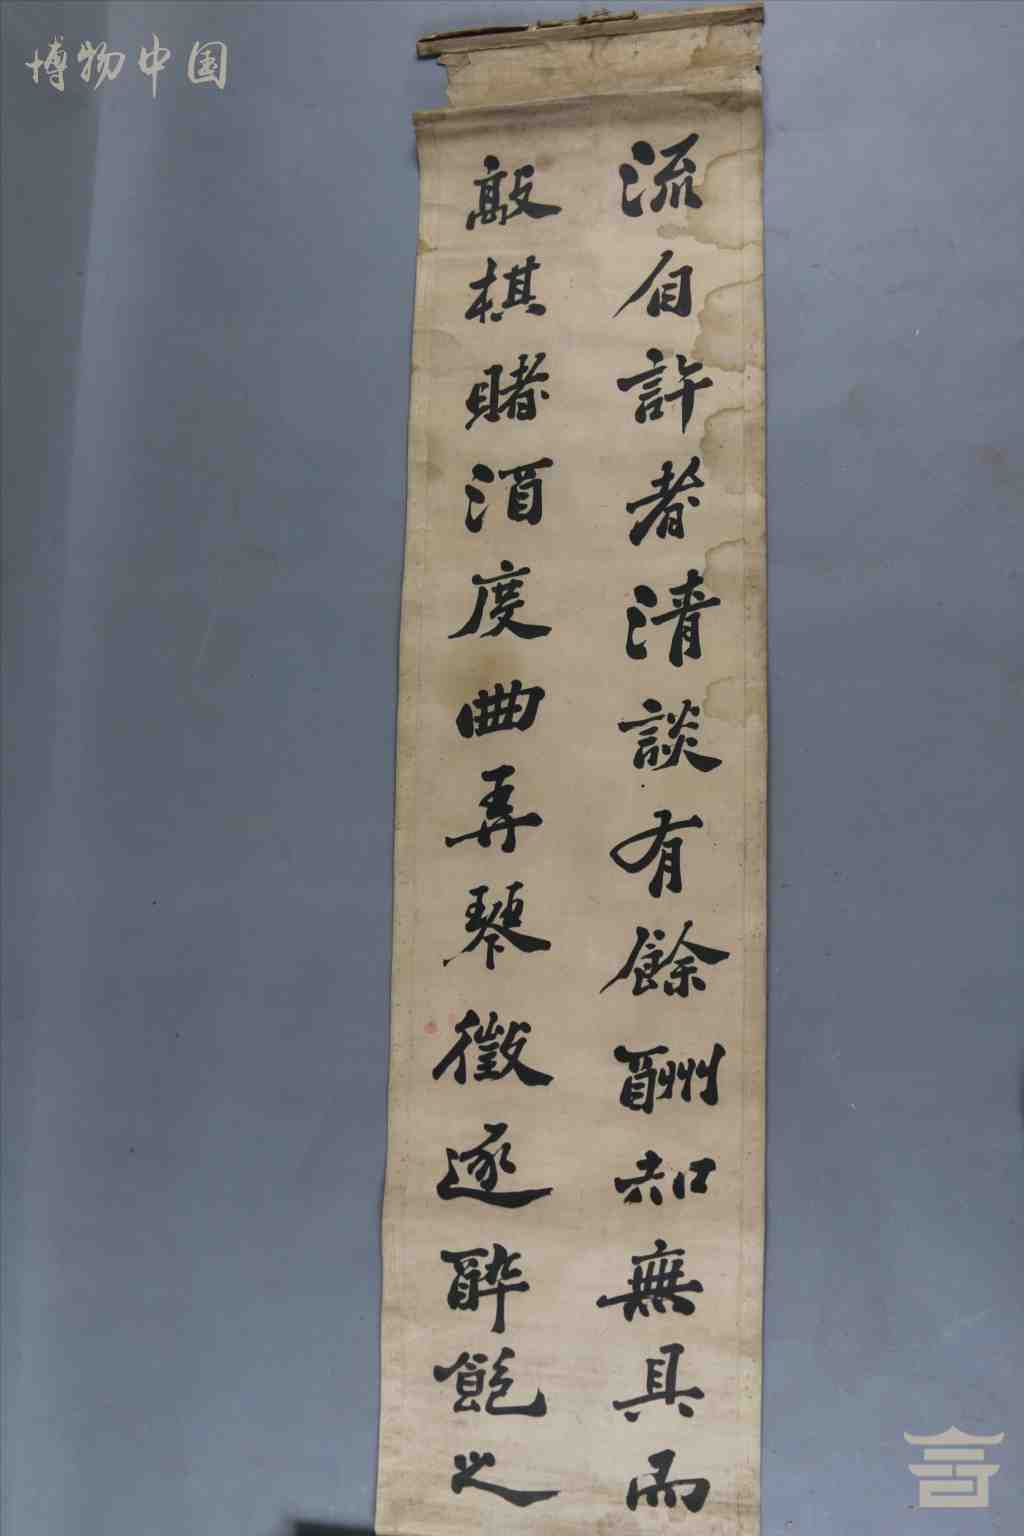 博物中国
流自許者清談有餘酬知無具而
敲棋賭酒度曲弄琴徵逐醉飽之